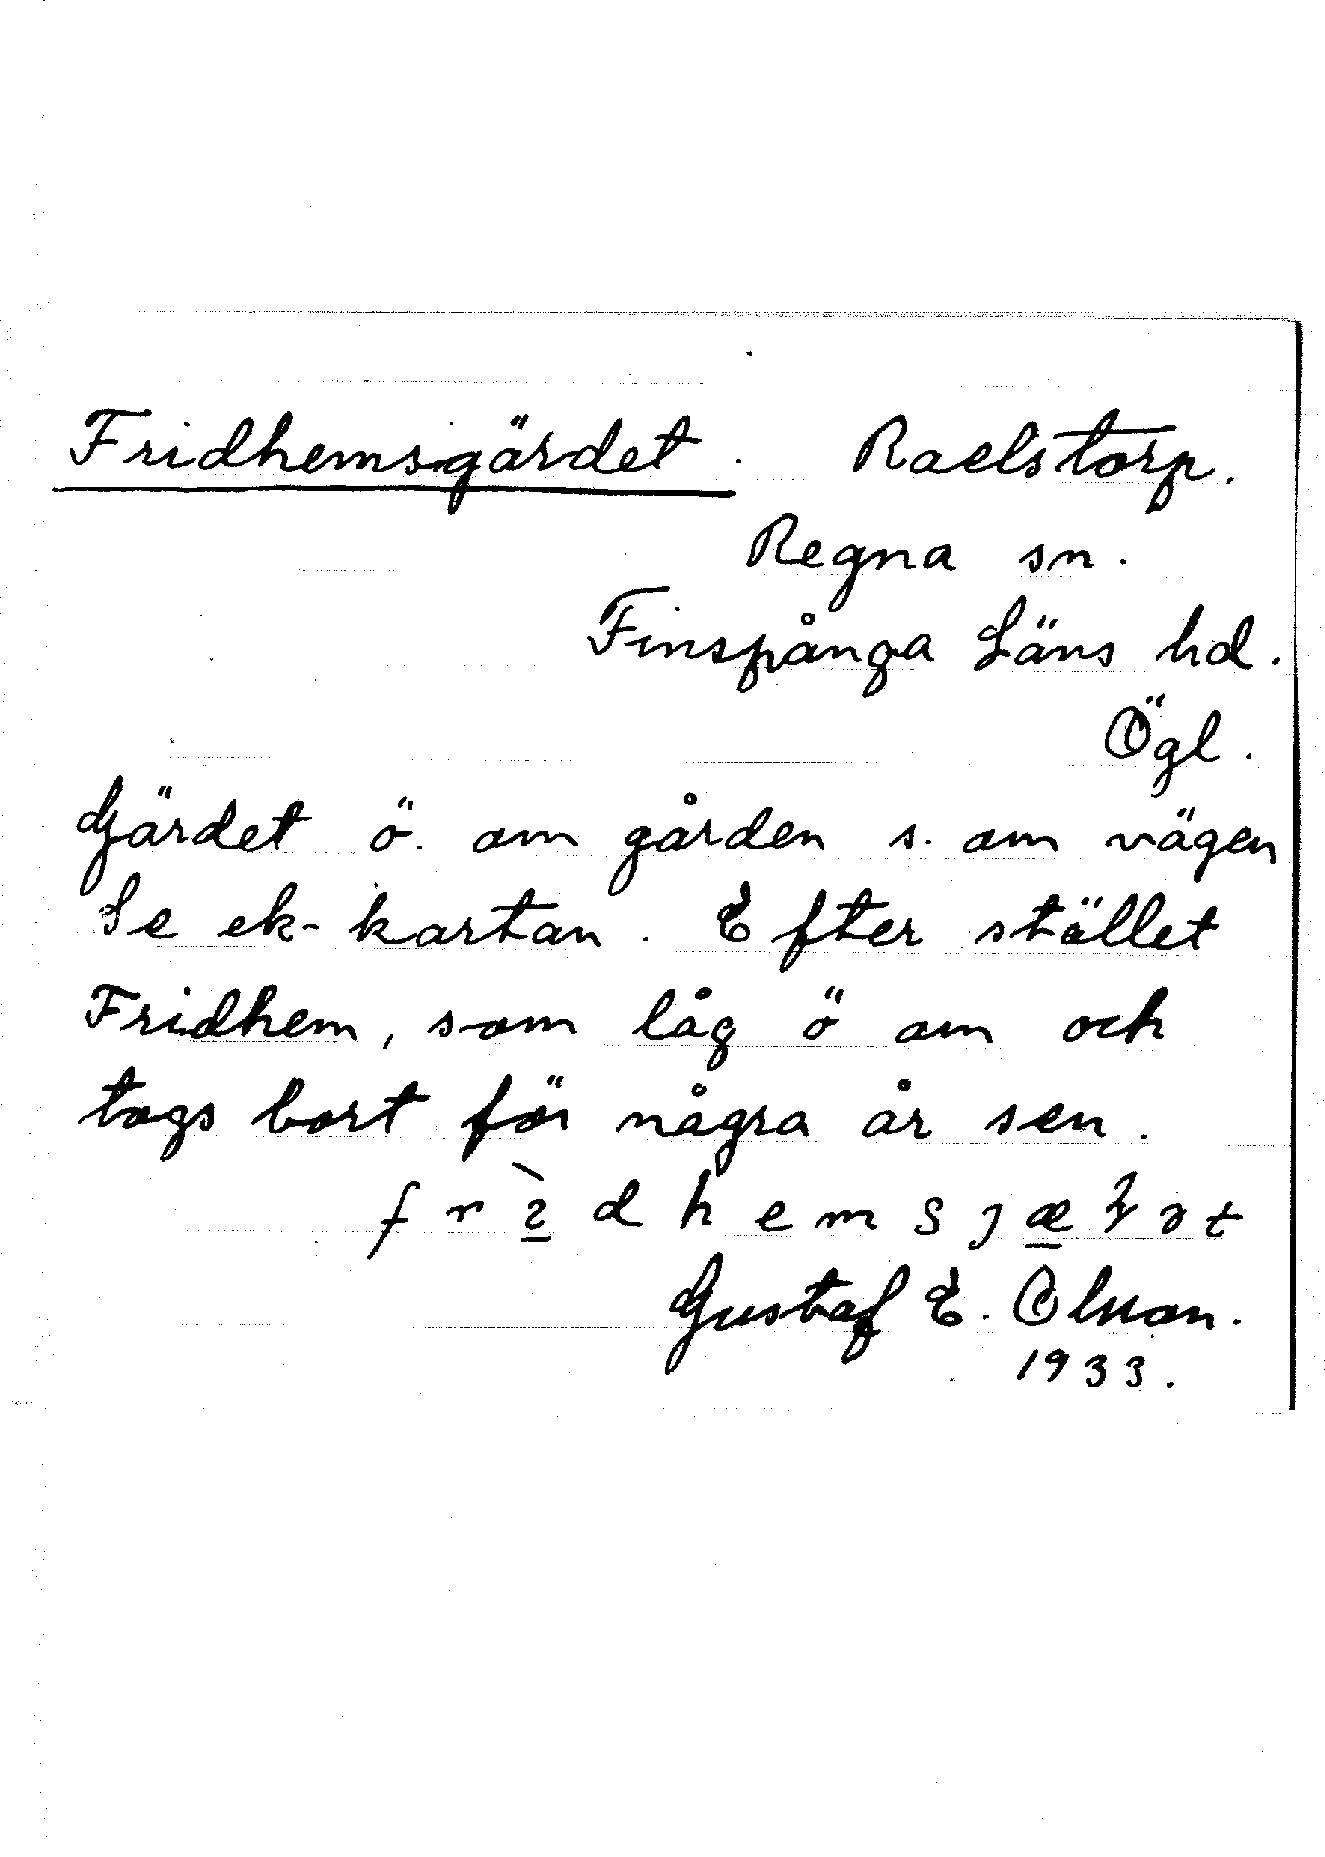 Fridhemsgärdet. Raelstorp.
Regna sn.
Finspånga Läns hd.
Ögl.
Gärdet ö. om gården s. om vägen
Se ek-kartan. Efter stället
Fridhem, som låg ö om och
togs bort för några år sen.
Gustaf E. Olsson.
1933.